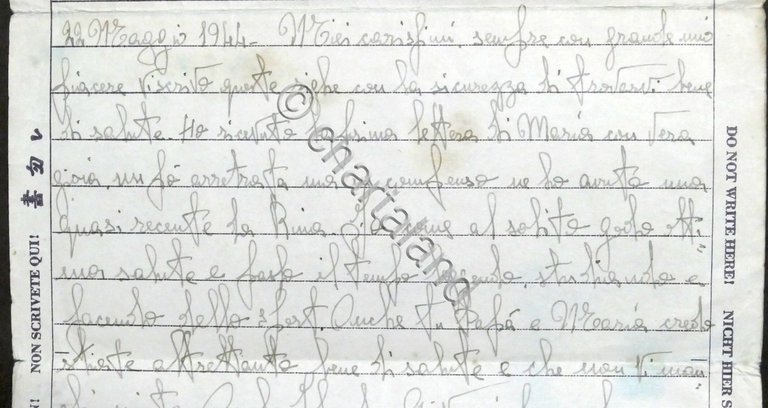 22 Maggio 1944. Miei carissimi, sempre con grande mio
piacere vi scrivo queste righe con la sicurezza di trovarvi bene
di salute. Ho ricevuto la prima lettera di Maria con vera
gioia, un pò arretrata ma in compenso ne ho avuta una
quasi recente da Rina. Io come al solito godo otti-
ma salute e passo il tempo studiando e
facendo dello sport. Anche tu Papà e Maria credo
stiate altrettanto bene di salute e che non vi man-
© chartaland
NON SCRIVETE QUI!
書勿し
DO NOT WRITE HERE!
NICHT HIER S